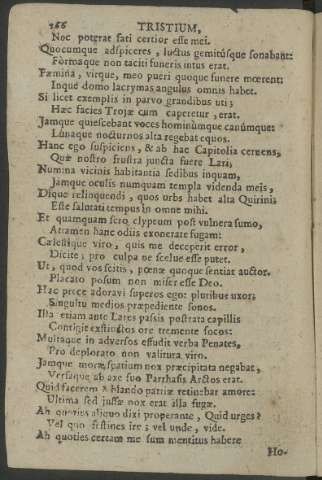 166 TRISTIUM,
Nec poterat fati certior esse mei.
Quocumque adspiceres, luctus gemitúsque sonabant:
Formaque non taciti funeris intus erat.
Fæmina, virque, meo pueri quoque funere mœrent:
Inque domo lacrymas angulus omnis habet.
Si licet exemplis in parvo grandibus uti;
Hæc facies Trojæ cum caperetur, erat.
Jamque quiescebant voces hominùmque canúmque:
Lunaque nocturnos alta regebat equos.
Hanc ego suspiciens, & ab hac Capitolia cernens,
Quæ nostro frustra juncta fuere Lari,
Numina vicinis habitantia sedibus inquam,
Jamque oculis numquam templa videnda meis,
Dique relinquendi, quos urbs habet alta Quirinia
Este salutati tempus in omne mihi.
Et quamquam serò clypeum post vulnera sumo,
Attamen hanc odiis exonerate fugam:
Cælestique viro, quis me deceperit error,
Dicite; pro culpa ne scelus esse putet.
Ut, quod vos scitis, pœnæ quoque sentiat auctor.
Placato possum non miser esse Deo.
Hac prece adoravi superos ego: pluribus uxor;
Singultu medios præpediente sonos.
Illa etiam ante Lares passis postrata capillis
Contigit extinctos ore tremente focos:
Multaque in adversos effudit verba Penates,
Pro deplorato non valitura viro.
Jamque moræ spatium nox præcipitata negabat,
Versaque ab axe suo Parrhasis Arctos erat.
Quid facerem? blando patriæ retinebar amore:
Ultima sed jussæ nox erat illa fugæ.
Ah quoties aliquo dixi properante, Quid urges?
Vel quo festines ire; vel unde, vide.
Ah quoties certam me sum mentitus habere
Ho-